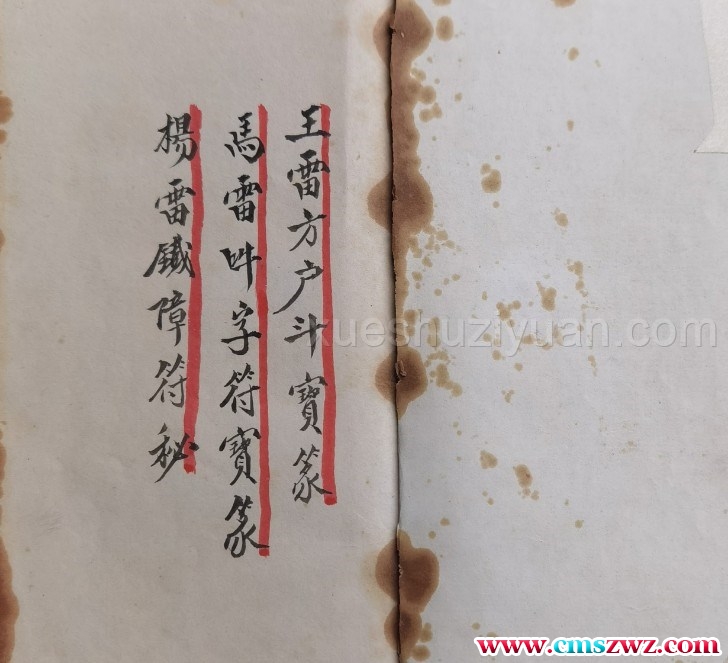 王雷方户斗寶篆
馬雷吽字符寶篆
楊雷鐵障符秘
xueshuziyuan.com
www.cmszwz.com